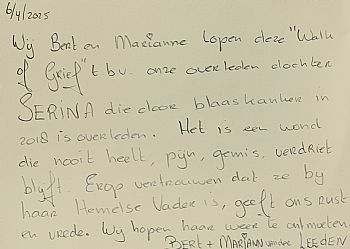 6/4/2025
Wij Bert en Marianne lopen deze "Walk
of Grief" t.b.v. onze overleden dochter
SERINA die door blaaskanker in
2018 is overleden. Het is een wond
die nooit heelt, pijn, gemis, verdriet
blijft. Erop vertrouwen dat ze by
haar Hemelse Vader is, geeft ons rust
en vrede. Wij hopen haar weer te ontmoeten
BERT + MARIANN van der LEEDEN